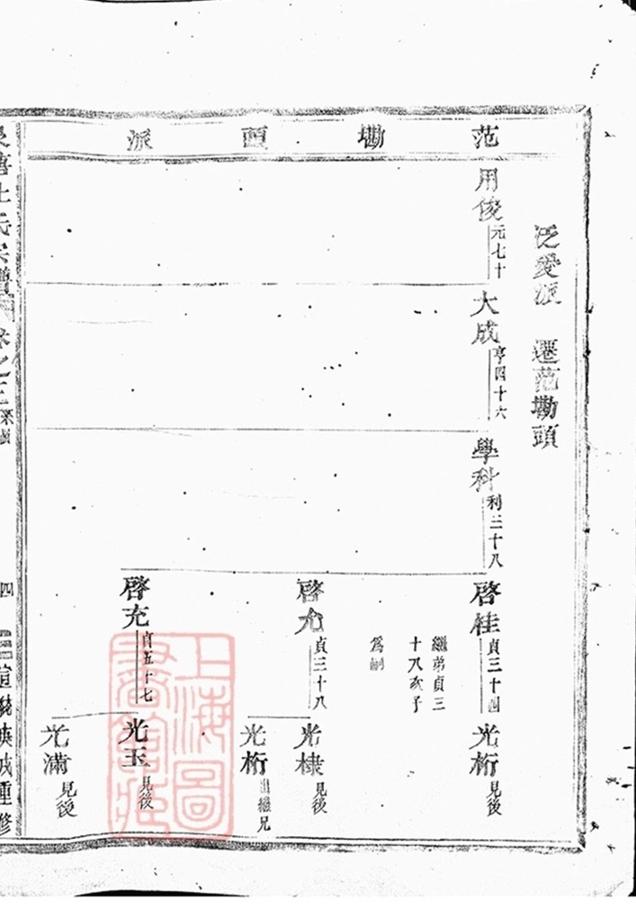 范墈頭派
泛愛派　遷范墈頭
用俊 元七十
大成 亨四十六
學科 利三十八
啓桂 貞三十四
繼弟貞三
十八次子
為嗣
光桁 見後
啓允 貞三十八
光棣 見後
光桁 出繼兄
啓充 貞五十七
光玉 見後
光滿 見後
氏宗譜 卷之三
四
重修
上海圖
書館藏